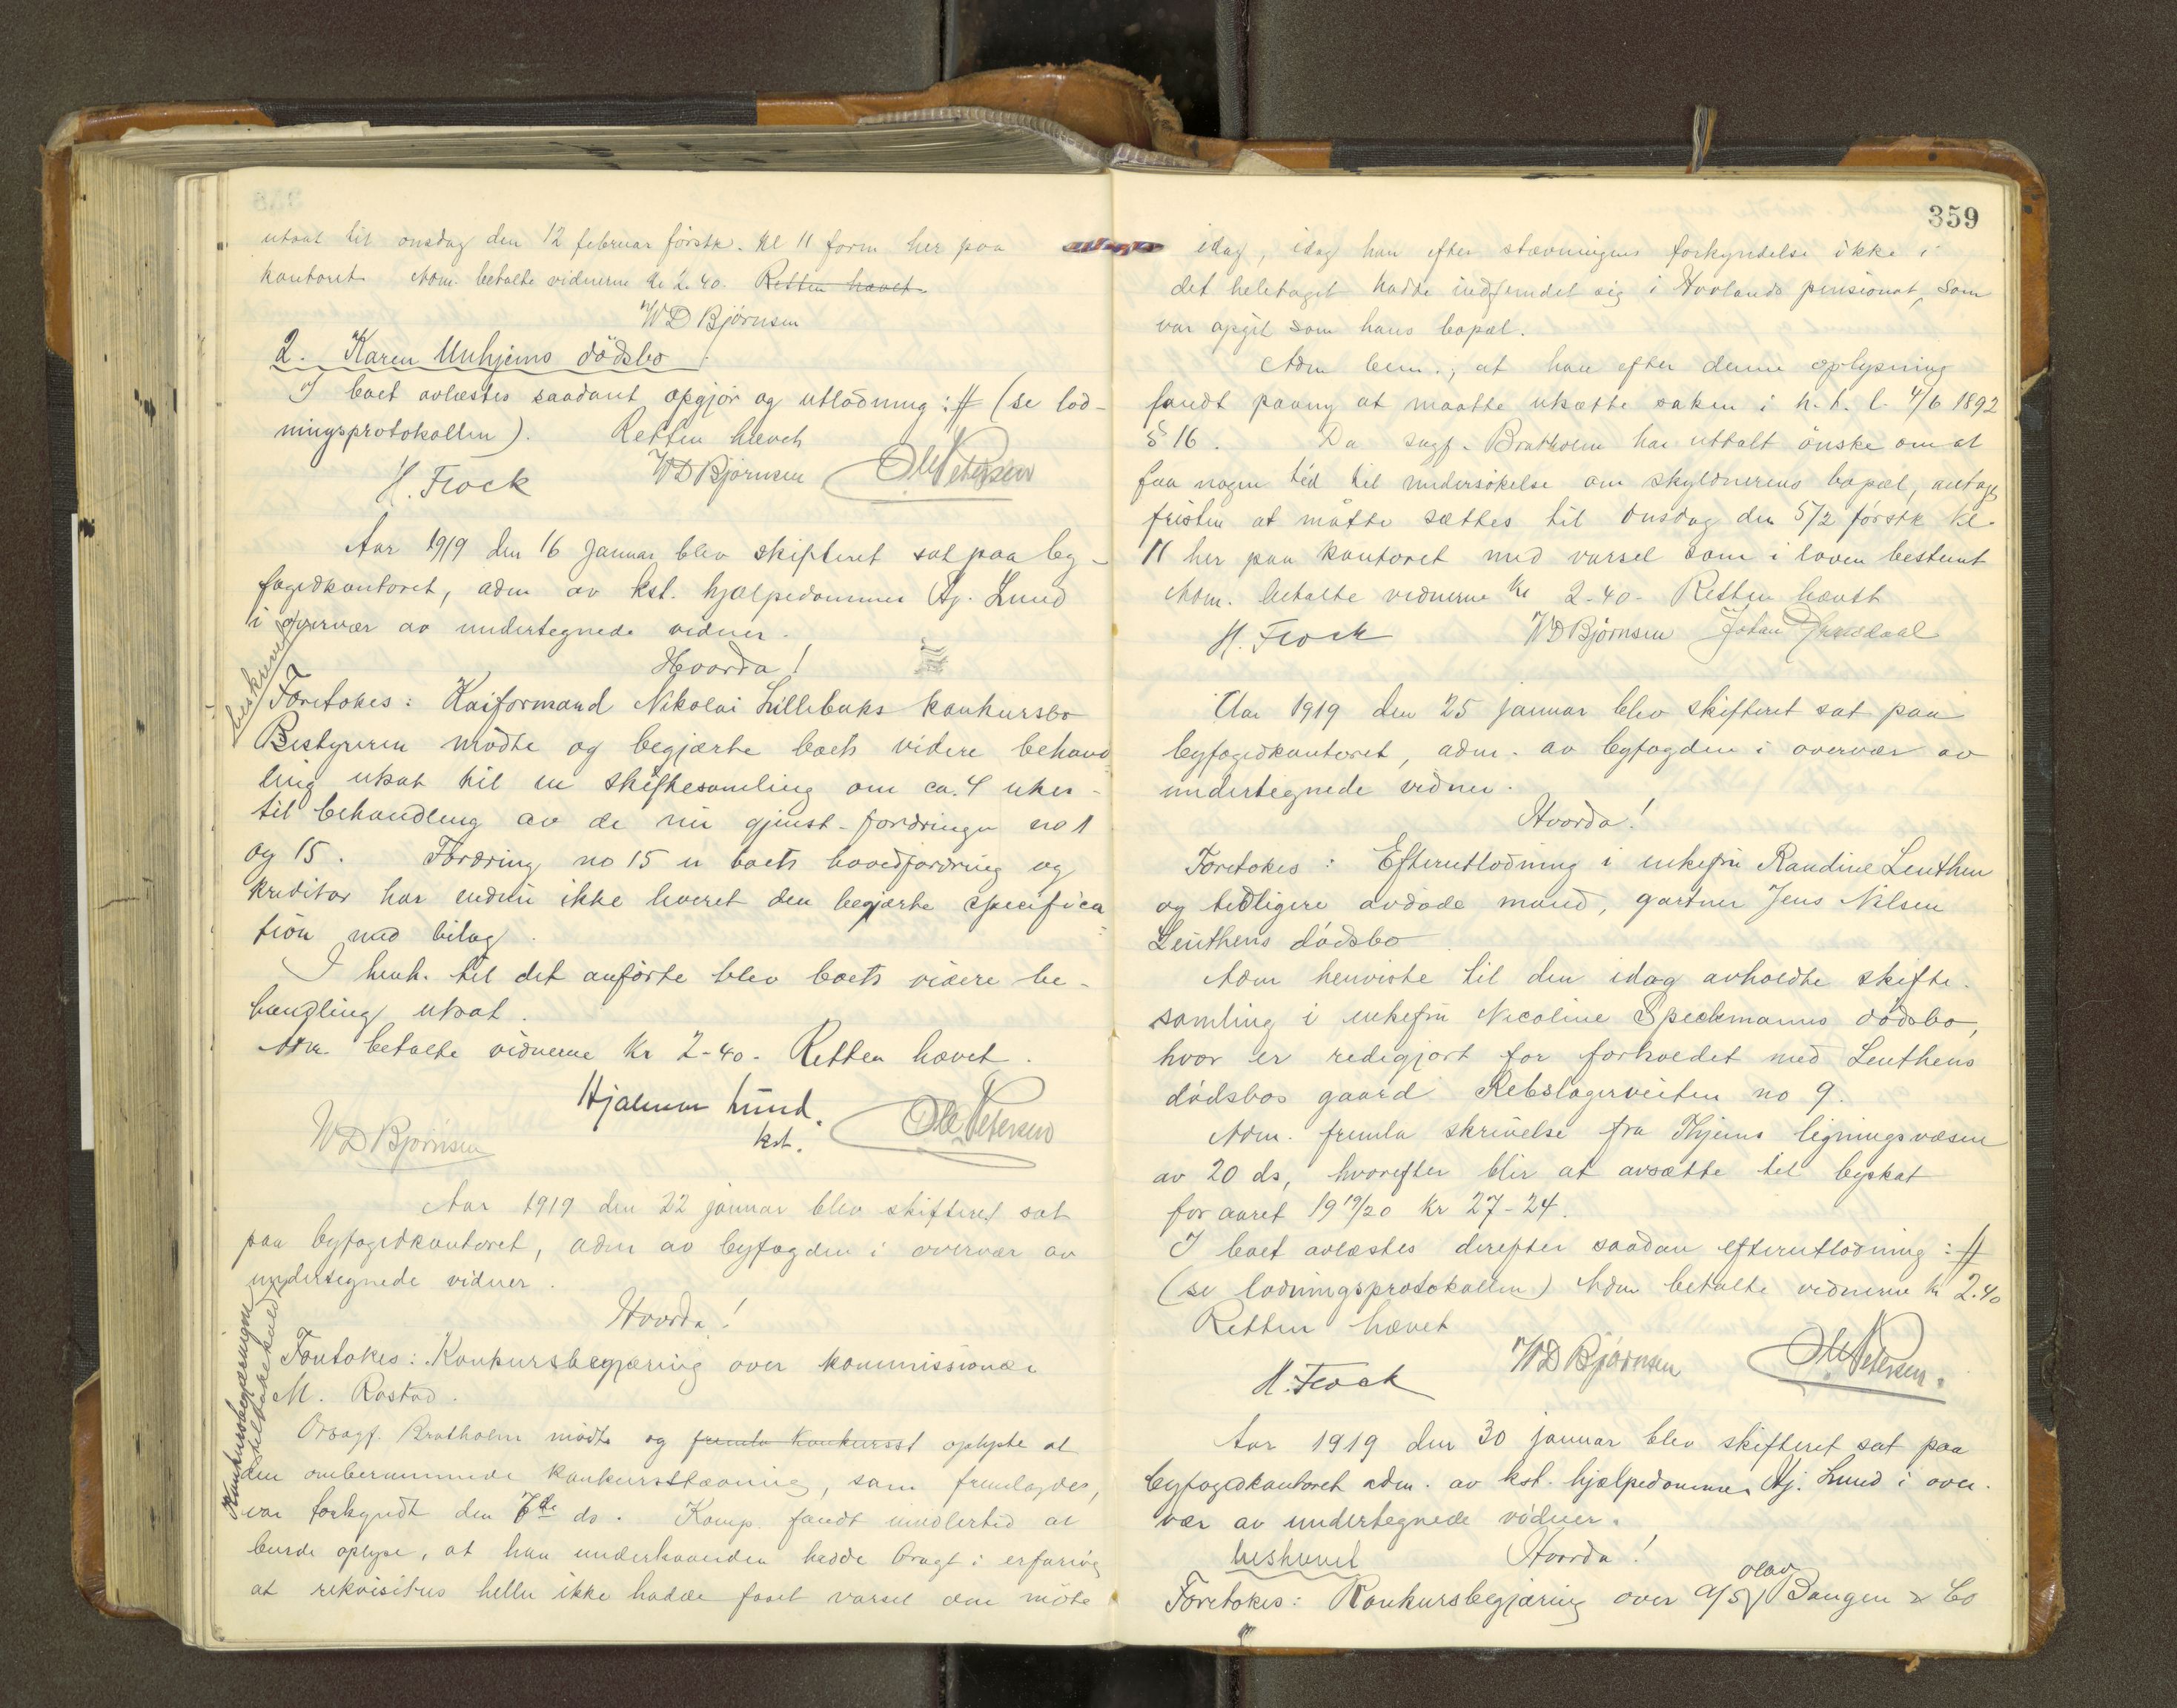 utsat til onsdag den 12 februar førstk. kl 11 form her paa
kontoret Adm. betalte vidnerne kr 2.40. Retten hævet.
WD Bjørnsen
2. Karen Unhjems dödsbo
I boet avlæstes saadant opgjør og utlodning :# (se lod-
ningsprotokollen). Retten hævet
H. Frock WD Bjørnsen Ole Petersen
Aar 1919 den 16 januar blev skifteret sat paa by-
fogedkontoret, adm av kst. hjælpedommer Hj. Lund
i overvær av undertegnede vidner.
Hvorda!
beskrevet
Foretokes: Kaiformand Nikolai Lillebuks konkursbo
Bestyreren mödte og begjærte boets videre behand
ling utsat til en skiftesamling om ca. 4 uker -
til behandling av de nu gjenst. fordringer no 1
og 15. Fordring no 15 er boets hovedfordring og
kreditor har endnu ikke leveret den begjærte specifica
tion med bilag.
I henh. til det anførte blev boets videre be-
handling utsat.
Adm. betalte vidnerne kr 2-40. Retten hævet.
Hjalmar Lund.
kst.
WD Bjørnsen Ole Petersen
Aar 1919 den 22 januar blev skifteret sat
paa byfogedkontoret, adm av byfogden i overvær av
undertegnede vidner.
Hvorda!
Konkursbegjæringen
tilbakekaldt
Foretokes: Konkursbegjæring over kommissionær
M. Rostad.
Orsagf. Bratholm mödte og fremla konkursst oplyste at
den omberammede konkursstævning, som fremlagdes,
var forkyndt den 7de ds. Komp. fandt imidlertid at
burde oplyse, at han underhaanden hadde bragt i erfaring
at rekvisitus heller ikke hadde faaet varsel om möte
359
idag, idag han efter stævningens forkyndelse ikke i
det heletaget hadde indfundet sig i Hovlands pensionat, som
var opgit som hans bopæl.
Adm bem., at han efter denne oplysning
fandt paany at maatte utsætte saken i h. t. l. 4/6 1892
§ 16. Da sagf. Bratholm har uttalt önske om at
faa nogen tid til undersökelse om skyldnerens bopæl, antages
fristen at måtte sættes til Onsdag den 5/2 förstk kl.
11 her paa kontoret med varsel som i loven bestemt
Adm. betalte vidnerne kr 2-40- Retten hævet
H. Frock WD Bjørnsen Johan
Aar 1919 den 25 januar blev skifteret sat paa
byfogedkontoret, adm. av byfogden i overvær av
undertegnede vidner.
Hvorda!
Foretokes: Efterutlodning i enkefru Randine Leuthen
og tidligere avdöde mand, gartner Jens Nilsen
Leuthens dödsbo
Adm henviste til den idag avholdte skifte-
samling i enkefru Nicoline Speckmanns dödsbo,
hvor er redegjort for forholdet med Leuthens
dödsbos gaard Rebslagerveiten no 9.
Adm. fremla skrivelse fra Thjems ligningsvæsen
av 20 ds, hvorefter blir at avsætte til byskat
for aaret 1919/20 kr 27-24.
I boet avlæstes derefter saadan efterutlodning :#
(se lodningsprotokollen) Adm betalte vidnerne kr 2.40
Retten hævet
H. Frock WD Bjørnsen Ole Petersen.
Aar 1919 den 30 januar blev skifteret sat paa
byfogedkontoret adm. av kst. hjælpedommer Hj. Lund i over-
vær av undertegnede vidner.
beskrevet Hvorda!
Olav
Foretokes: Konkursbegjæring over A/S Bangen & Co